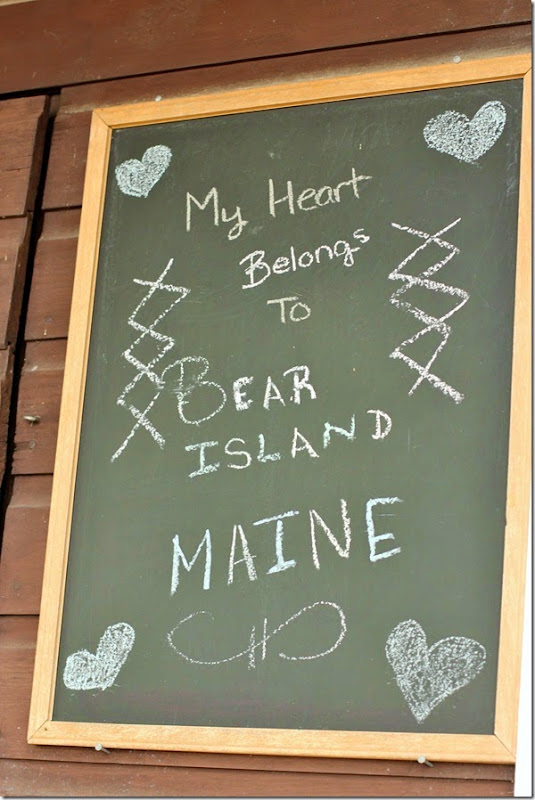 My Heart
Belongs
To
BEAR
ISLAND
MAINE